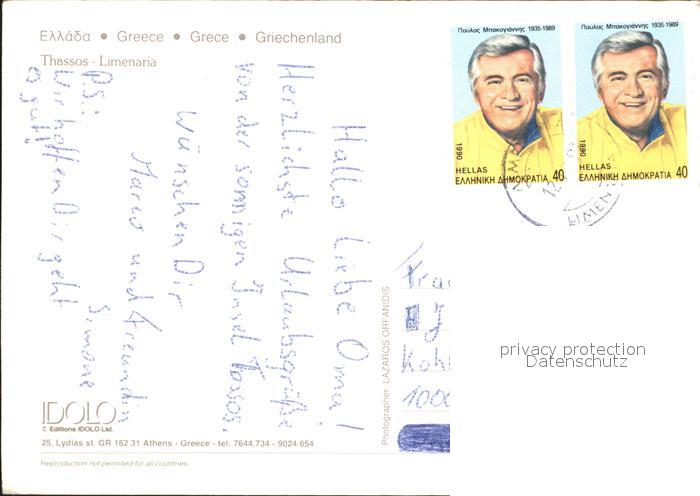 Ελλάδα • Greece • Grece • Griechenland
Thassos - Limenaria
Hallo liebe Oma!
Herzlichste Urlaubsgrüße
von der sonnigen Insel Tassos.
Wünschen Dir
Marco und Freundin
Simone
P.S.:
Wir hoffen Dir geht
es gut!
IDOLO
© Editions IDOLO Ltd.
25, Lydias st. GR 162 31 Athens - Greece - tel: 7644.734 - 9024.654
Reproduction not permited for all countries
Photographer: LAZAROS ORFANIDIS
Παύλος Μπακογιάννης 1935-1989
1990
HELLAS
ΕΛΛΗΝΙΚΗ ΔΗΜΟΚΡΑΤΙΑ 40
Παύλος Μπακογιάννης 1935-1989
1990
HELLAS
ΕΛΛΗΝΙΚΗ ΔΗΜΟΚΡΑΤΙΑ 40
LIMEN
Fra
J
Kohl
1000
privacy protection
Datenschutz